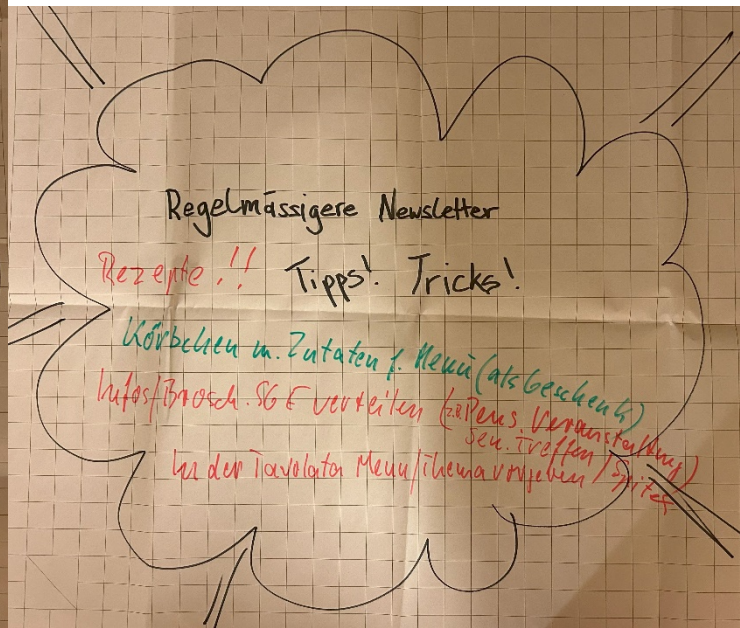 Regelmässigere Newsletter
Rezepte!! Tipps! Tricks!
Körbchen m. Zutaten f. Menü (als Geschenk)
Infos/Brosch. SGE verteilen (z.B. Pens. Veranstaltung)
Sen. Treffen / Spitex
In der Tavolata Menu/Thema vorgeben